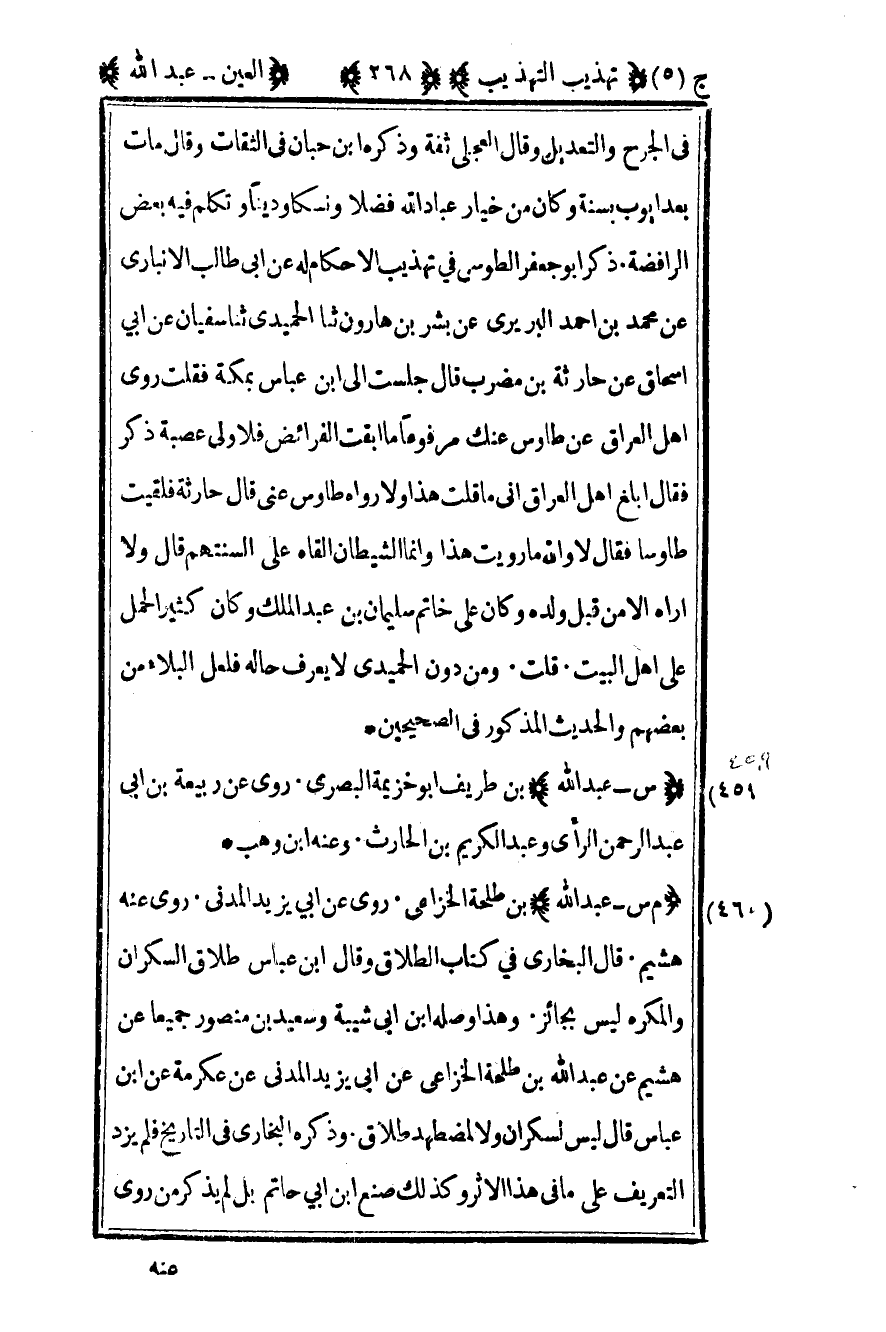 ج (٥) ﴿ تهذيب التهذيب ﴾ ﴿ ٢٦٨ ﴾ ﴿ العين - عبد الله ﴾
فى الجرح والتعديل وقال العجلى ثقة وذكره ابن حبان فى الثقات وقال مات
بعد ايوب بسنة وكان من خيار عباد الله فضلا ونسكا ودينا وتكلم فيه بعض
الرافضة٠ ذكر ابو جعفر الطوسى في تهذيب الاحكام له عن ابى طالب الانبارى
عن محمد بن احمد البريرى عن بشر بن هارون ثنا الحميدى ثنا سفيان عن ابي
اسحاق عن حارثة بن مضرب قال جلست الى ابن عباس بمكة فقلت روى
اهل العراق عن طاوس عنك مرفوعاً ما ابقت الفرائض فلاولى عصبة ذكر
فقال ابلغ اهل العراق انى ماقلت هذا ولا رواه طاوس عنى قال حارثة فلقيت
طاوسا فقال لا والله مارويت هذا وانما الشيطان القاه على السنتهم قال ولا
اراه الا من قبل ولده وكان على خاتم سليمان بن عبد الملك وكان كثير الحمل
على اهل البيت٠ قلت٠ ومن دون الحميدى لا يعرف حاله فلعل البلاء من
بعضهم والحديث المذكور فى الصحيحين*
٤٥٩
(٤٥٩ ﴿ س - عبد الله ﴾ بن طريف ابو خزيمة البصرى٠ روى عن ربيعة بن ابى
عبد الرحمن الرأى وعبد الكريم بن الحارث٠ وعنه ابن وهب*
(٤٦٠) ﴿ م س - عبد الله ﴾ بن طلحة الخزاعى٠ روى عن ابي يزيد المدنى٠ روى عنه
هشيم٠ قال البخارى في كتاب الطلاق وقال ابن عباس طلاق السكران
والمكره ليس بجائز٠ وهذا وصله ابن ابى شيبة وسعيد بن منصور جميعا عن
هشيم عن عبد الله بن طلحة الخزاعى عن ابى يزيد المدنى عن عكرمة عن ابن
عباس قال ليس لسكران ولا لمضطهد طلاق٠ وذكره البخارى فى التاريخ فلم يزد
التعريف على مافى هذا الاثر وكذلك صنع ابن ابي حاتم بل لم يذكر من روى
عنه